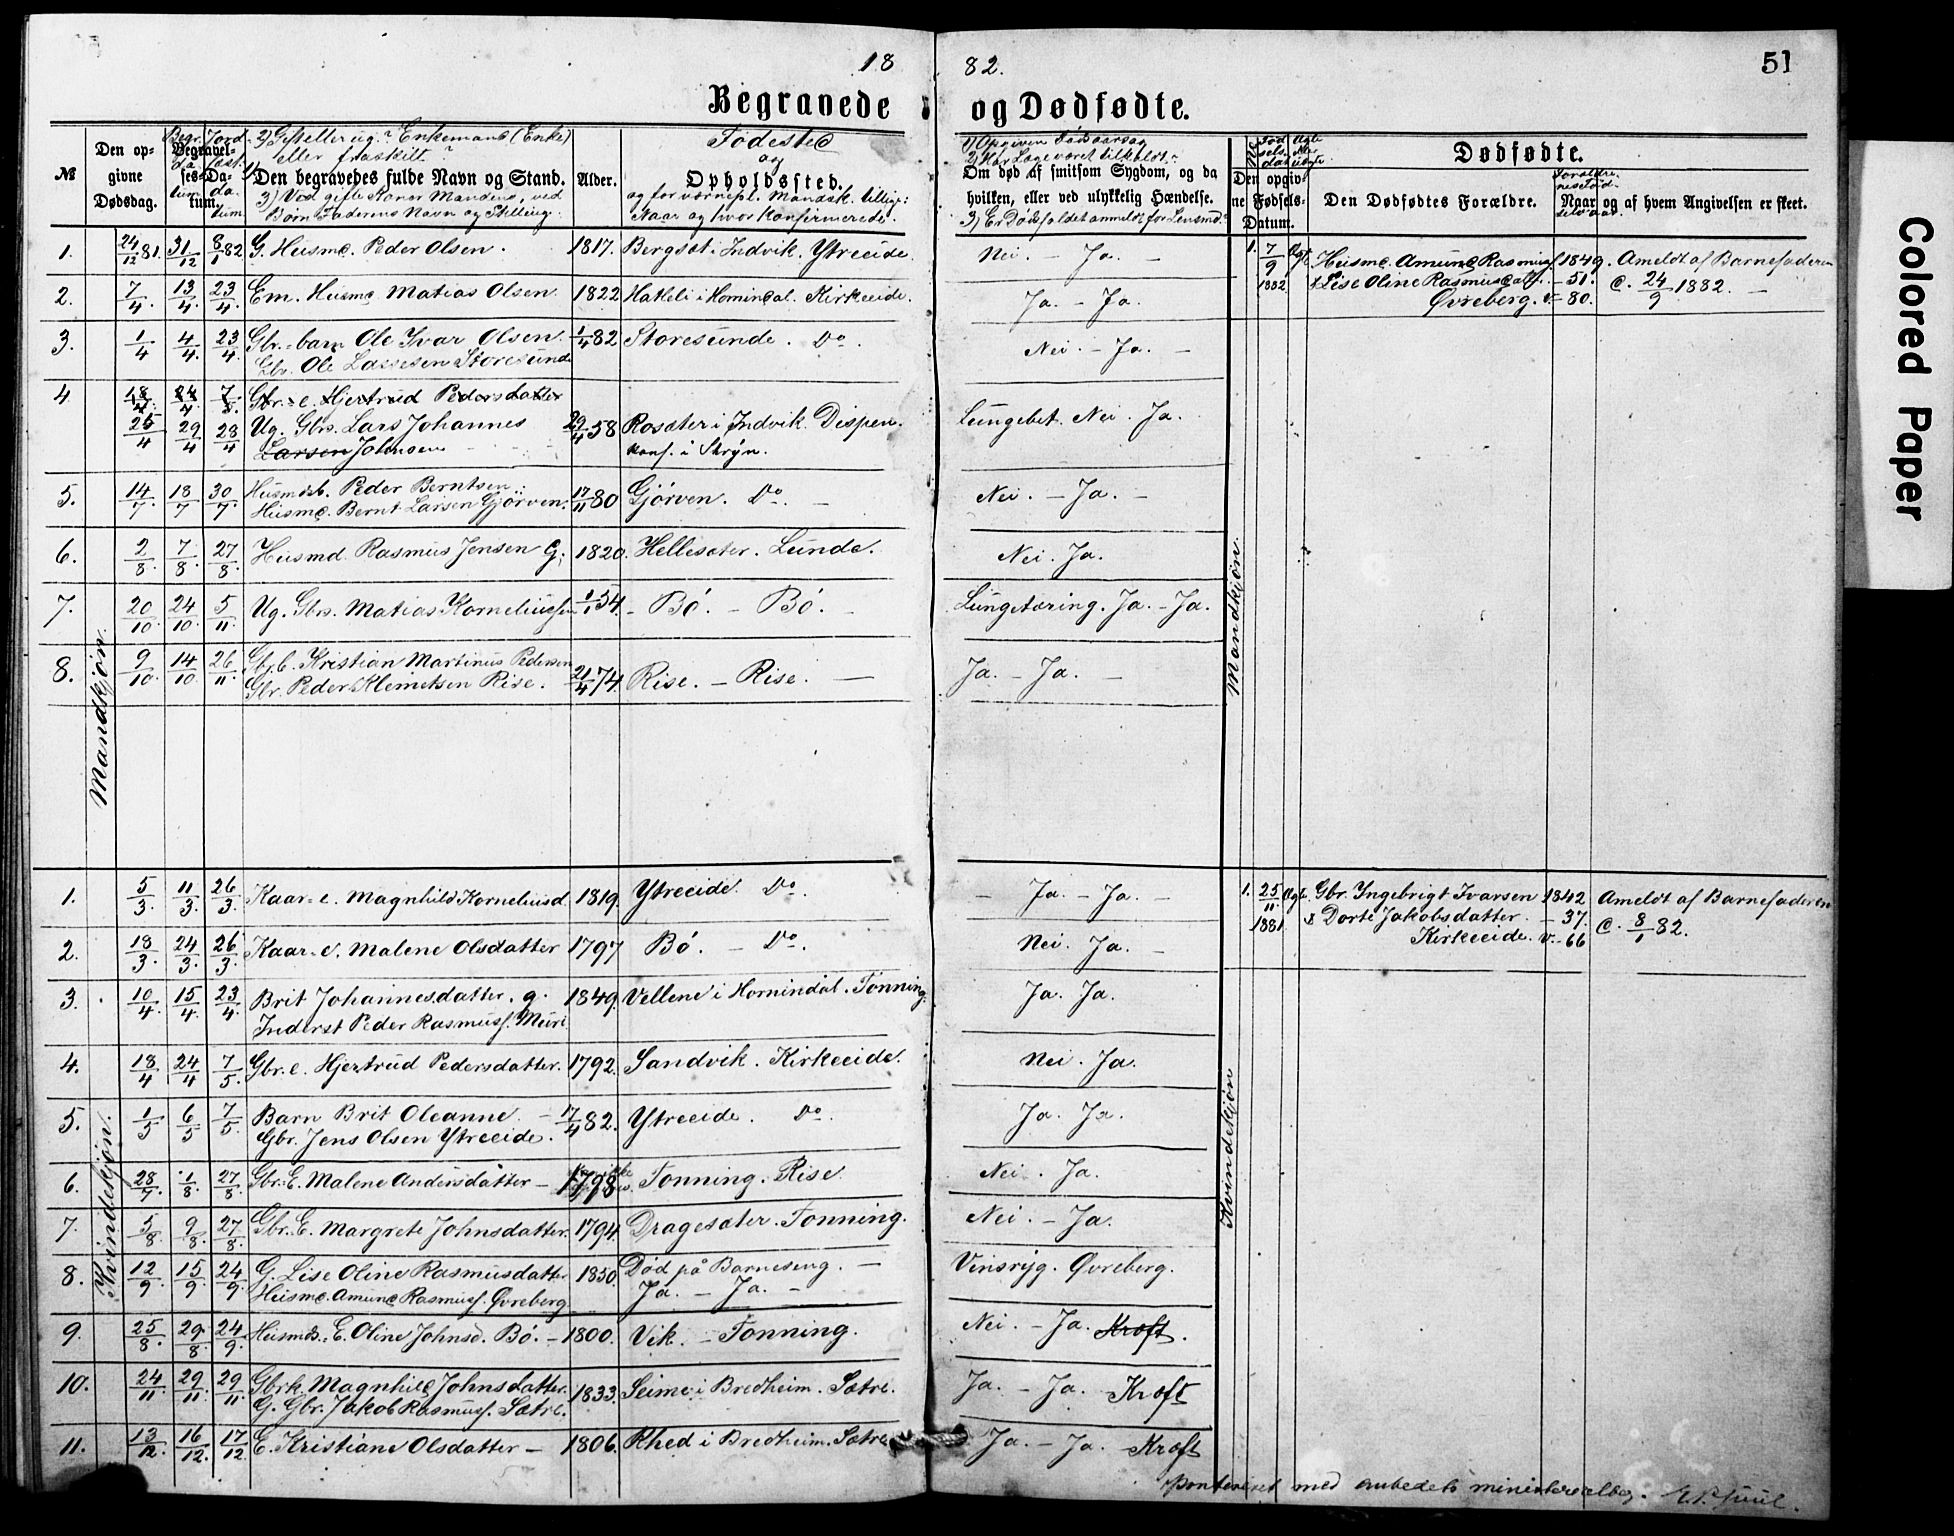 18
82.
51
Begravede
og Dødfødte.
№
Den opgivne Dødsdag.
Begravelses-Datum.
Begr. datum
Jordfæst. datum
2) Gift eller ug.? Enkemand (Enke)
eller fraskilt?
1) Den begravedes fulde Navn og Stand.
3) Ved gifte Koner Mandens, ved
Børn Faderens Navn og Stilling.
Alder.
Fødested
og
Opholdssted.
og for værnepl. Mandsk. tillige:
Naar og hvor konfirmerede.
1) Opgiven Dødsaarsag
2) Har Læge været tilkaldt?
Om død af smitsom Sygdom, og da
hvilken, eller ved ulykkelig Hændelse.
3) Er Dødsfaldet anmeldt for Lensmd.?
Dødfødte.
Den opgivne Fødsels-Datum.
Den Dødfødtes Forældre.
Naar og af hvem Angivelsen er skeet.
Mandkjøn.
1. 24/12 81. 31/12 8/1 82 G. Husmd. Peder Olsen. 1817. Bergset i Indvik. Ytreeide. Nei. – Ja. –
2. 7/4. 13/4. 23/4. Em. Husmd Matias Olsen. 1822 Hakeli i Hornindal. Kirkeeide. Ja. – Ja.
3. 1/4 4/4. 23/4. Gbr.-barn Ole Ivar Olsen. 1/4 82 Storesunde. Do. Nei. – Ja. –
Gbr. Ole Lassesen Storesunde
4 18/4. 24/4. 7/5. Gbr.-e. Hjertrud Pedersdatter
25/4 29/4 28/4 Ug. Gbrs. Lars Johannes 29/4 58 Rosæter i Indvik. Dispen. Lungebet. Nei. Ja.
Larsen Johnsen konf. i Stryn.
5. 14/7. 18/7 30/7 Husmdsb. Peder Berntsen. 17/11 80 Gjörven. Do. – Nei. – Ja. –
Husmd. Bernt Larsen Gjörven.
6. 2/8. 7/8. 27/8. Husmd. Rasmus Jensen G. 1820. Hellesæter. Lunde. Nei. Ja.
7. 20/10. 24/10. 5/11. Ug. Gbrs. Matias Korneliussen 1/1 54. – Bö. – Bö. – Lungetæring. Ja. – Ja.
8. 9/10. 14/10 26/11. Gbrb. Kristian Martinus Pedersen 21/4 74. Rise. – Rise. — Ja. – Ja. –
Gbr. Peder Klemetsen Rise.
Mandkjøn.
1. 7/9 1882 Ægt. Husmd. Amund Rasmuss. 1849. Ameldt af Barnefaderen
& Lise Oline Rasmusdatt. – 51. d. 24/9 1882. –
Övreberg. v. 80.
Kvindekjøn.
1. 5/3. 11/3. 26/3. Kaar-e. Magnhild Korneliusd. 1819. Ytreeide. Do. – Ja. – Ja. –
2. 18/3. 24/3. 26/3. Kaar-e. Malene Olsdatter 1797 Bö. – Do. Nei. Ja. –
3. 10/4. 15/4. 23/4. Brit Johannesdatter. g. 1849. Vellene i Hornindal. Tonning. Ja. Ja.
Inderst Peder Rasmuss. Muri
4. 18/4 24/4 7/5. Gbr.e. Hjertrud Pedersdatter. 1792. Sandvik. Kirkeeide. Nei. Ja.
5. 1/5 6/5 7/5. Barn Brit Oleanne. – 17/4 82. Ytreeide. Do. Ja. Ja.
Gbr. Jens Olsen Ytreeide.
6. 28/7. 1/8. 27/8. Gbr.-E. Malene Andersdatter – 1798 Tonning. Rise Nei. Ja.
7. 5/8. 9/8. 27/8. Gbr.E. Margrete Johnsdatter. 1794. Dragesæter. Tonning. Nei. – Ja.
8. 12/9. 15/9. 24/9. G. Lise Oline Rasmusdatter 1850. Död på Barneseng. — Vinsryg. Övreberg.
Husmd. Amund Rasmuss. Övreberg. Ja. – Ja. –
9. 25/8. 29/8. 24/9. Husmds.-E. Oline Johnsd. Bö. – 1800. Vik. – Tonning. Nei. – Ja. Kræft.
10. 24/11. 29/11. 29/11. Gbrk. Magnhild Johnsdatter. 1833. Seime i Bredheim. Sætre. Ja. – Ja. – Kræft
G. Gbr. Jakob Rasmuss. Sætre.
11. 13/12. 16/12. 17/12. E. Kristiane Olsdatter – 1806. Rhed i Bredheim. Sætre Ja. – Ja. Kræft
Kvindekjøn
1. 25/11 1881. Ægt. Gbr. Ingebrigt Ivarsen 1842 Ameldt af Barnefaderen
& Dorte Jakobsdatter. – 37. d. 8/1 82.
Kirkeeide. v. – 66
med embedets ministerialbog.
Colored Paper